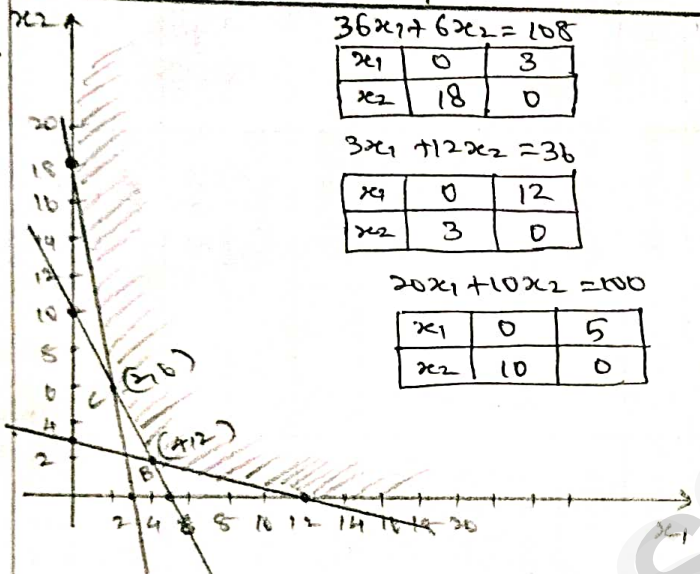 x2
36x1 + 6x2 = 108
x1 0 3
x2 18 0
3x1 + 12x2 = 36
x1 0 12
x2 3 0
20x1 + 10x2 = 100
x1 0 5
x2 10 0
20
18
16
14
12
10
8
6
4
2
C (2,6)
B (4,2)
2 4 6 8 10 12 14 16 18 20
x1